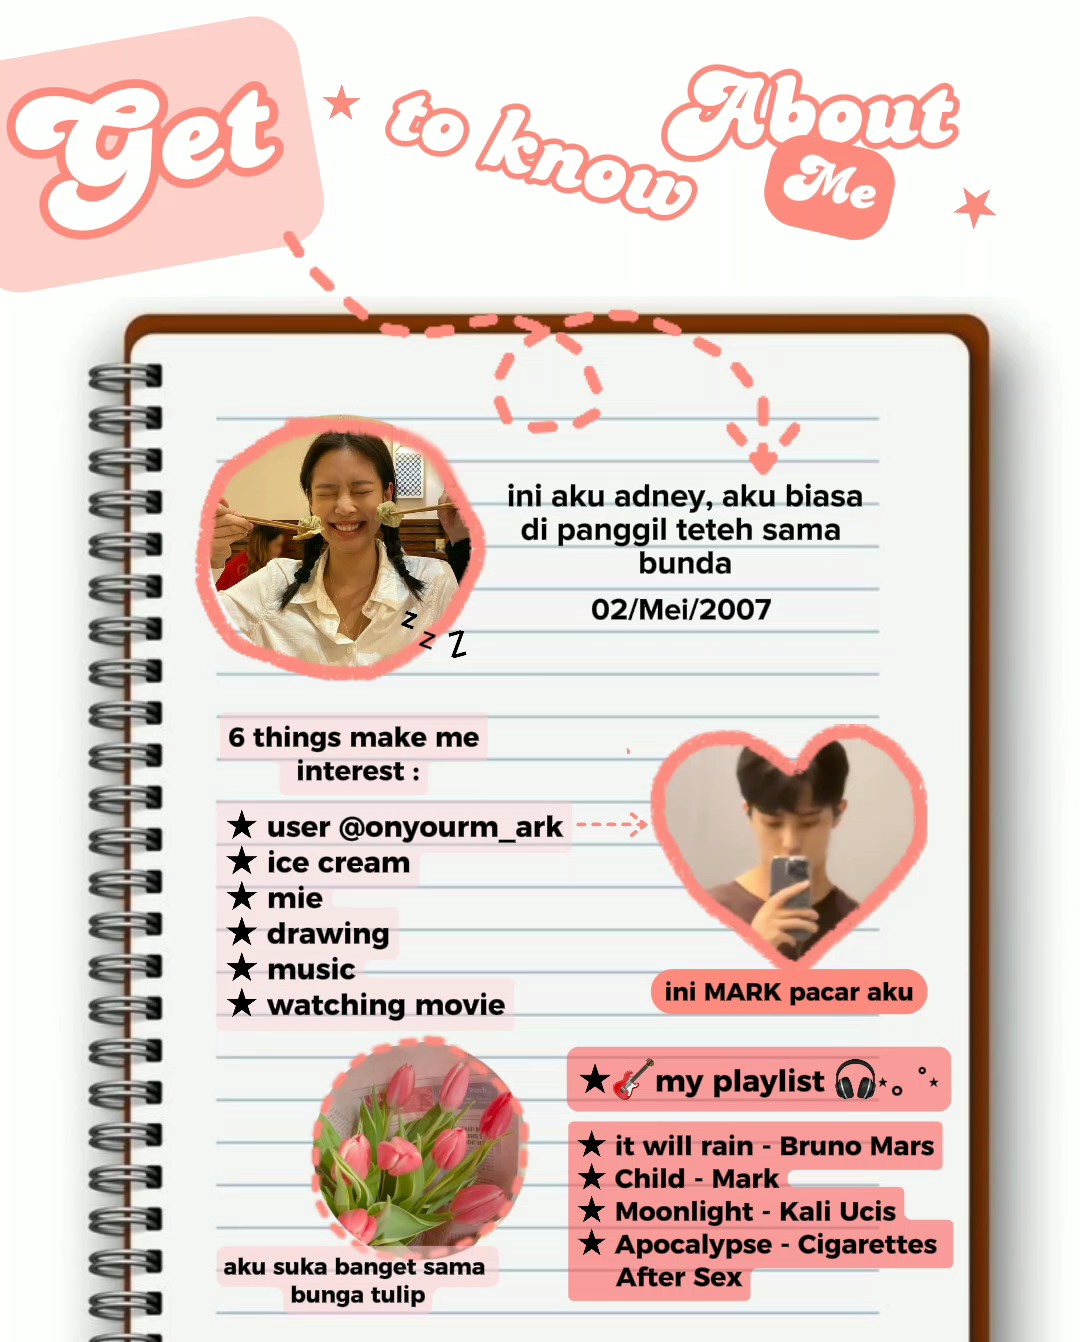 Get ★ to know About
Me ★
ini aku adney, aku biasa
di panggil teteh sama
bunda
02/Mei/2007
z z Z
6 things make me
interest :
★ user @onyourm_ark
★ ice cream
★ mie
★ drawing
★ music
★ watching movie
ini MARK pacar aku
★🎸my playlist 🎧⋆｡ °⋆
★ it will rain - Bruno Mars
★ Child - Mark
★ Moonlight - Kali Ucis
★ Apocalypse - Cigarettes
After Sex
aku suka banget sama
bunga tulip